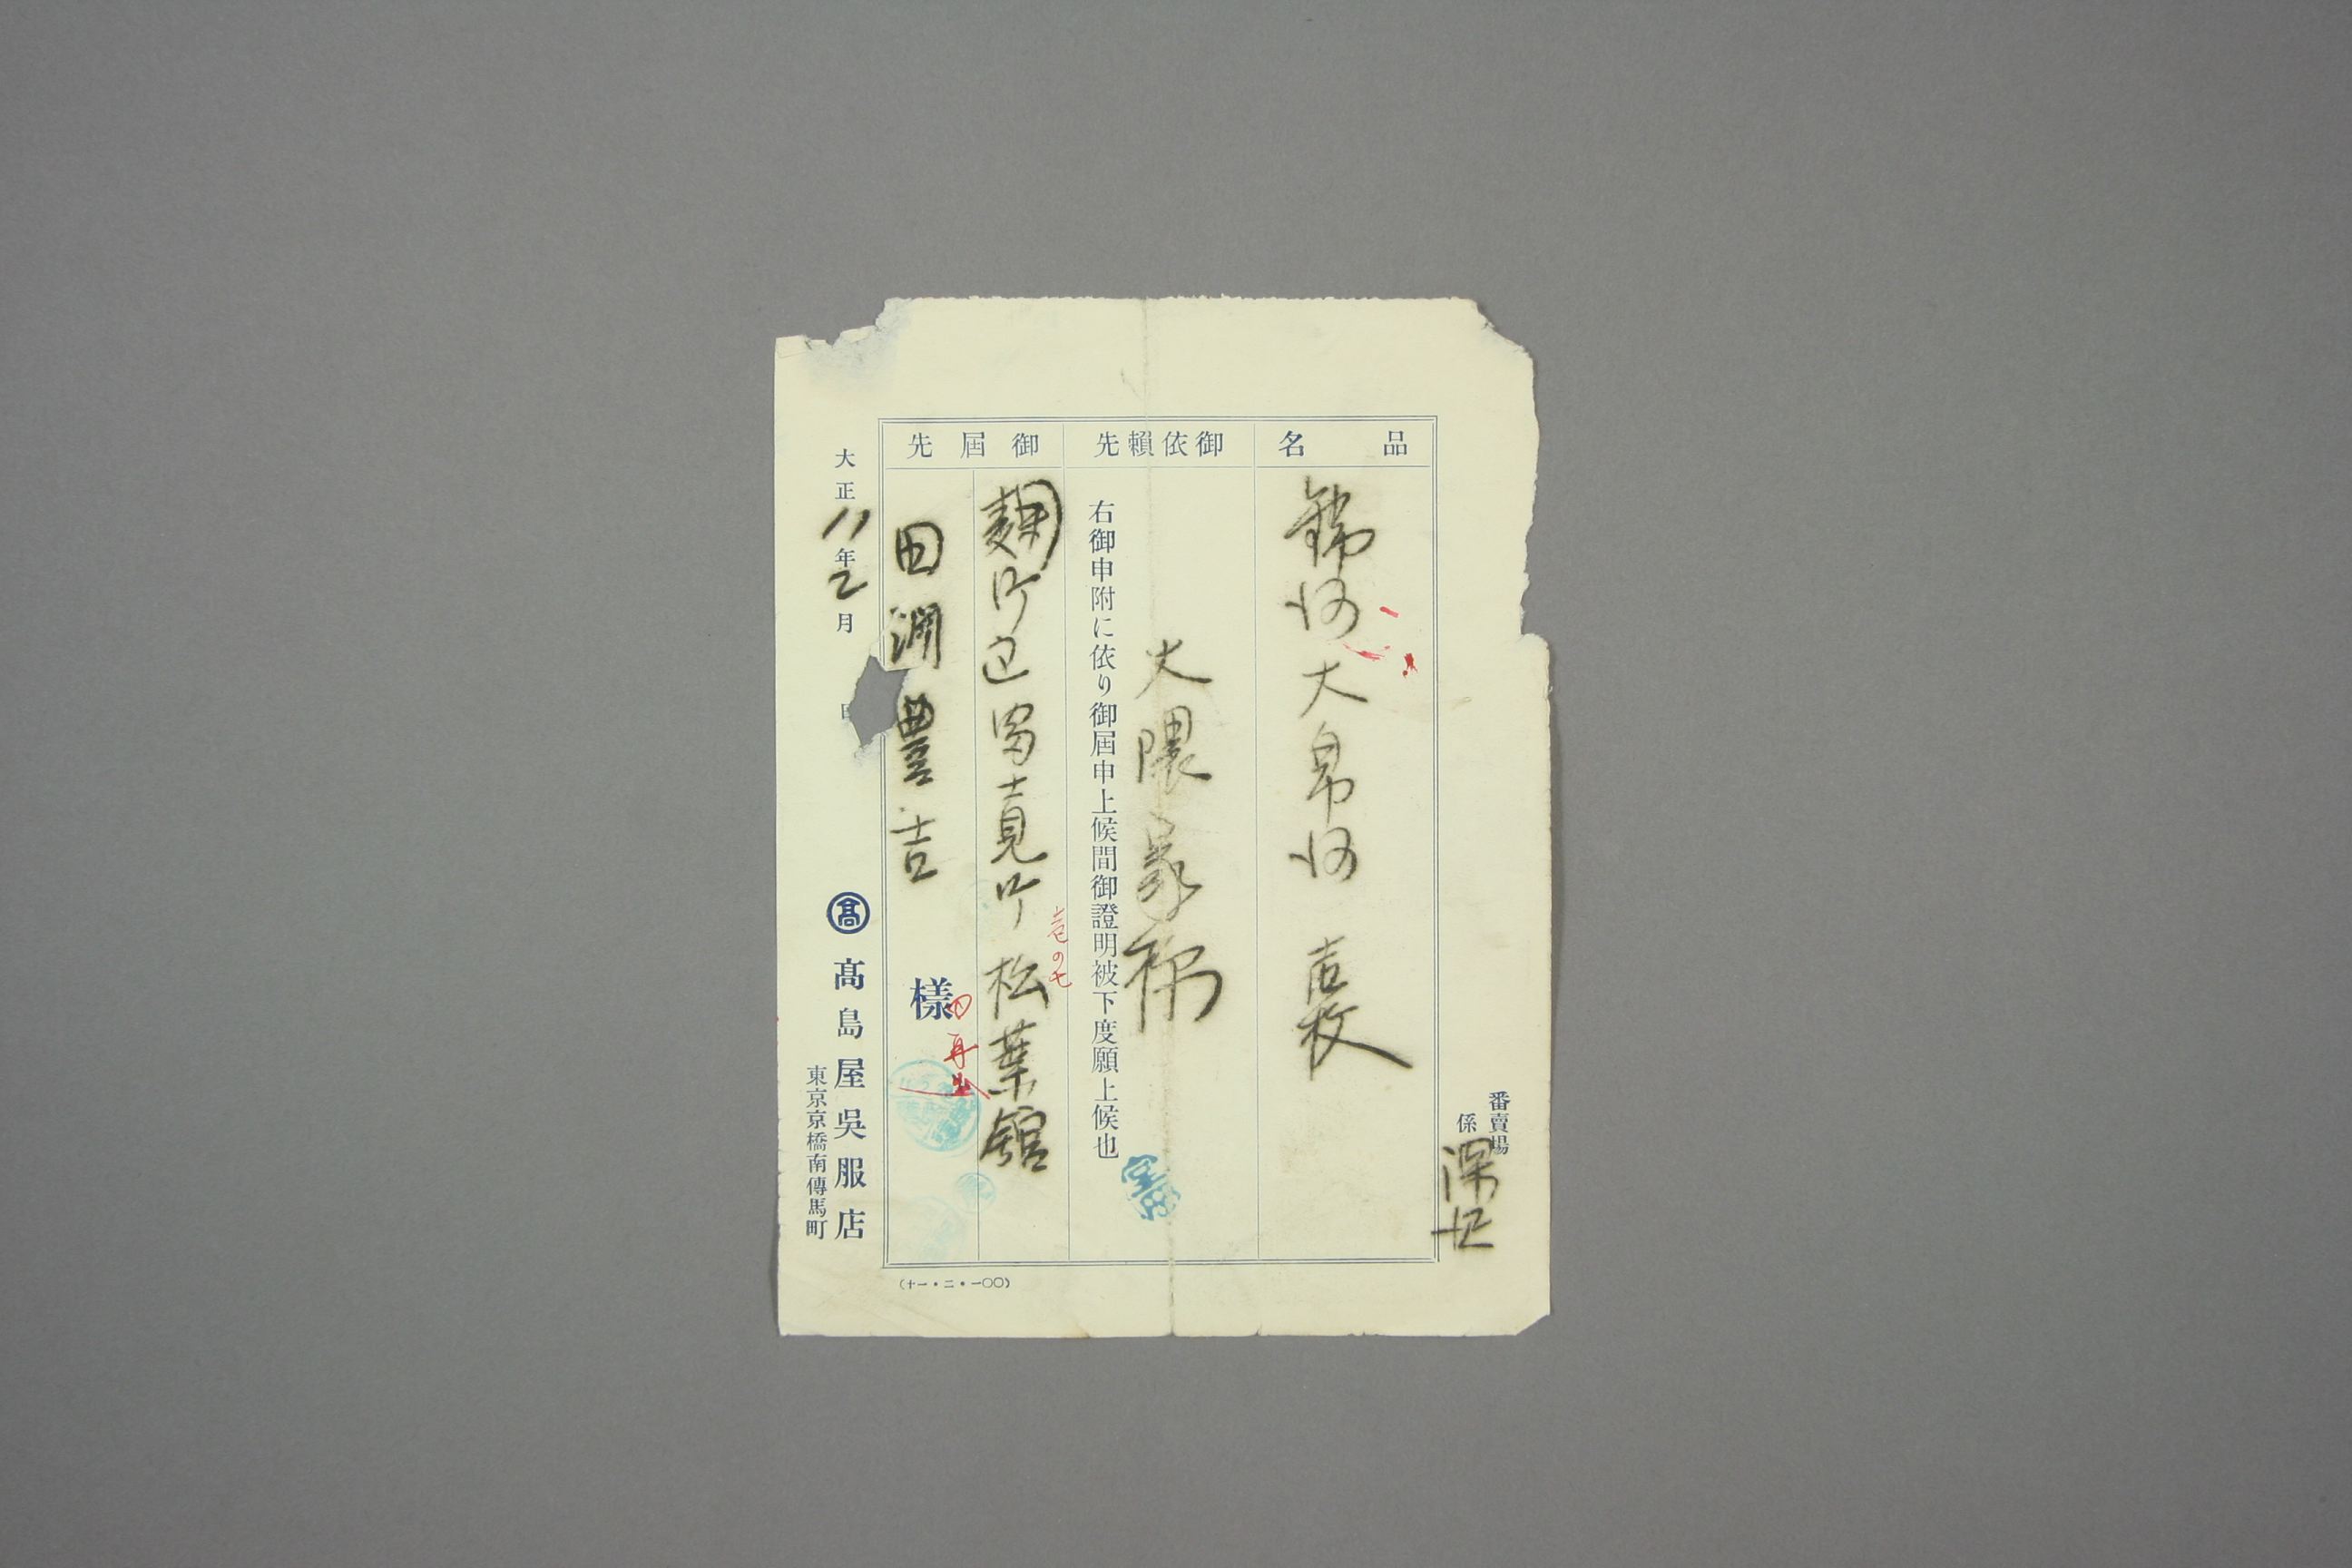 番賣場
係
品名
錦紗大帛紗 壱枚
御依賴先
大隈家様
右御申附に依り御屆申上候間御證明被下度願上候也
御屆先
麹町区冨士見町 松葉舘
壱の七
田渕豊吉
様
再出
大正11年2月
高
髙島屋吳服店
東京京橋南傳馬町
(十一・二・一〇〇)